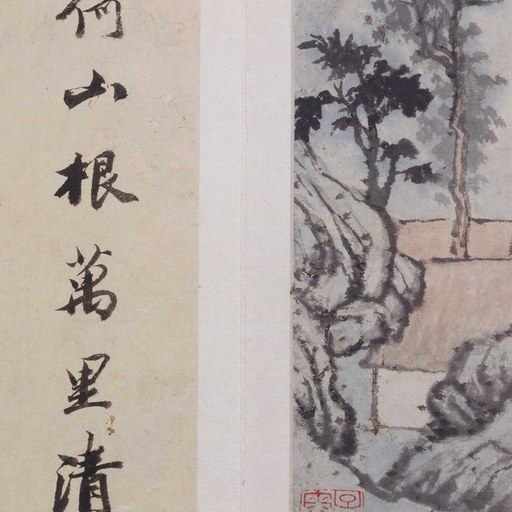 何山根萬里清